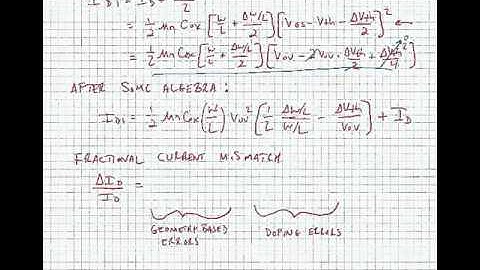 I_D1 = 1/2 I_D
= 1/2 μn Cox [W/L + ΔW/L / 2] [VGS - Vth - ΔVth/2]² ←
= 1/2 μn Cox [W/L + ΔW/L / 2] [Vov - 2Vov · ΔVth/2 + ΔVth²/4]
AFTER SOME ALGEBRA:
I_D1 = 1/2 μn Cox (W/L) Vov² (1/2 ΔW/L / W/L - ΔVth/Vov) + I_D
FRACTIONAL CURRENT MISMATCH
ΔI_D / I_D =
GEOMETRY-BASED ERRORS
DOPING ERRORS